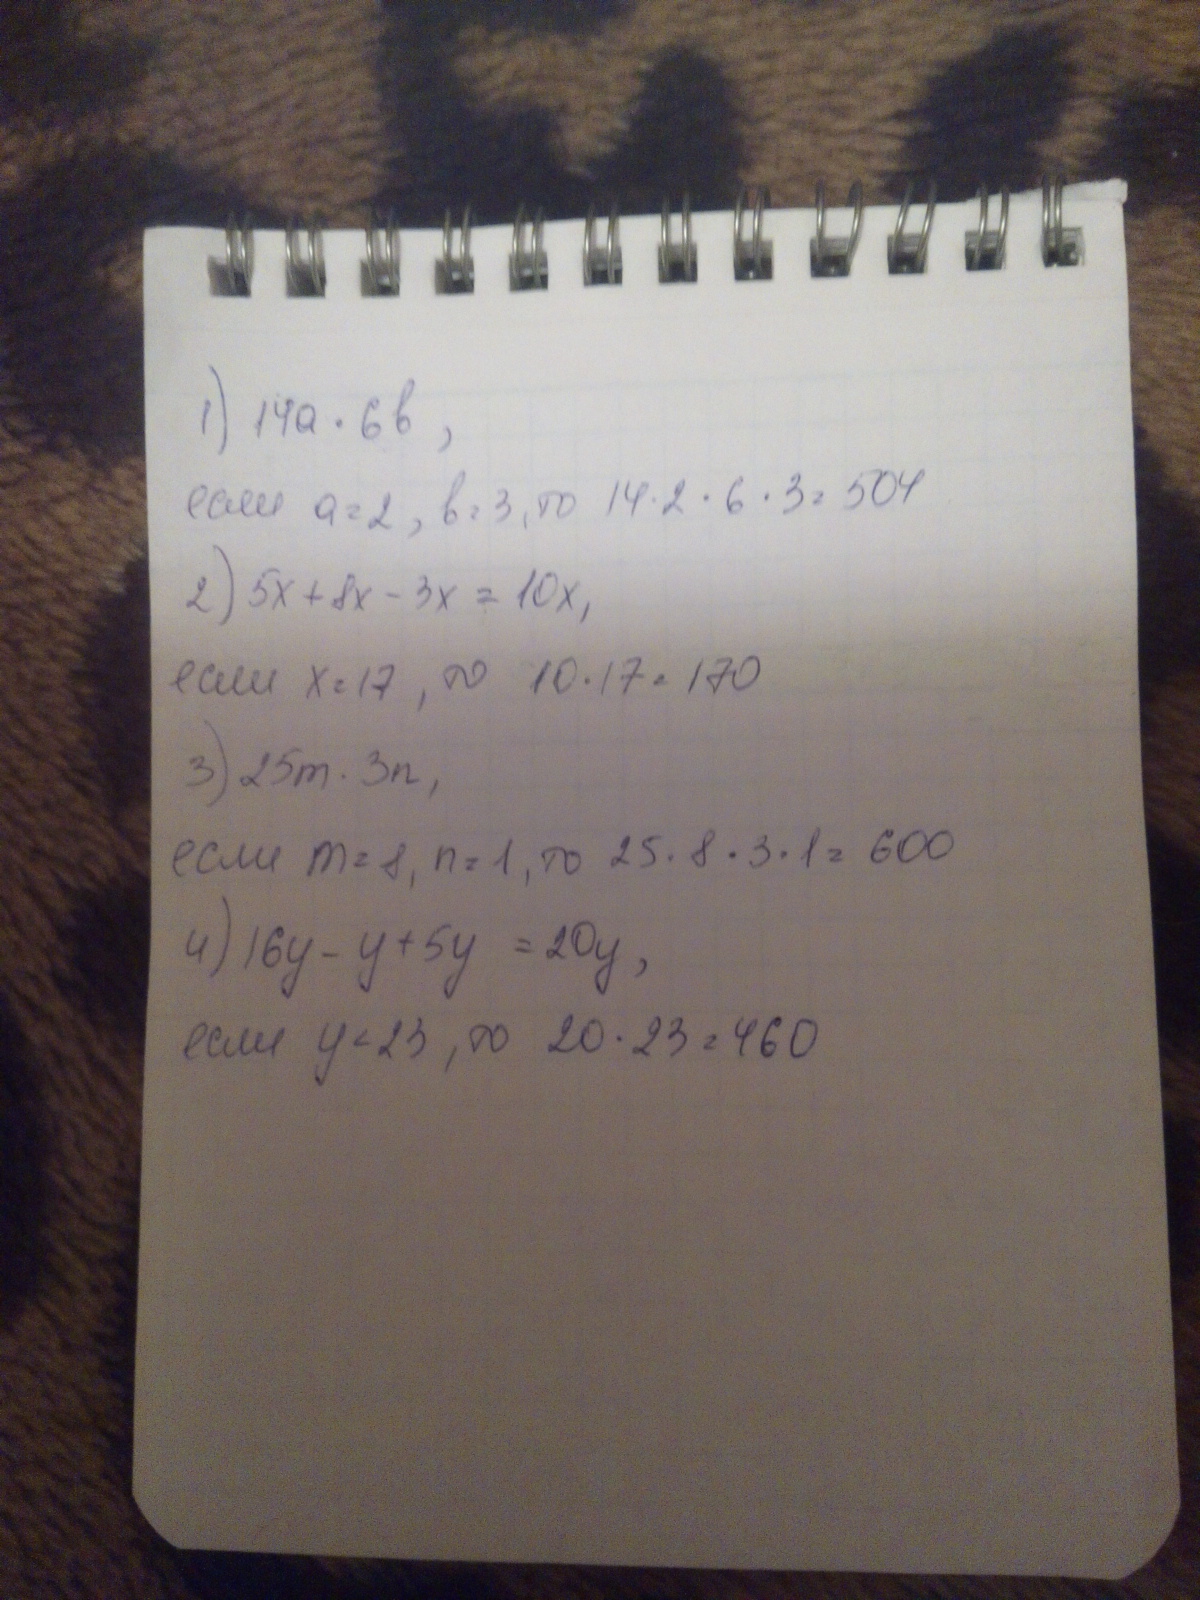 1) 14a · 6b,
если a=2, b=3, то 14·2·6·3=504
2) 5x+8x-3x=10x,
если x=17, то 10·17=170
3) 25m·3n,
если m=8, n=1, то 25·8·3·1=600
4) 16y-y+5y =20y,
если y=23, то 20·23=460